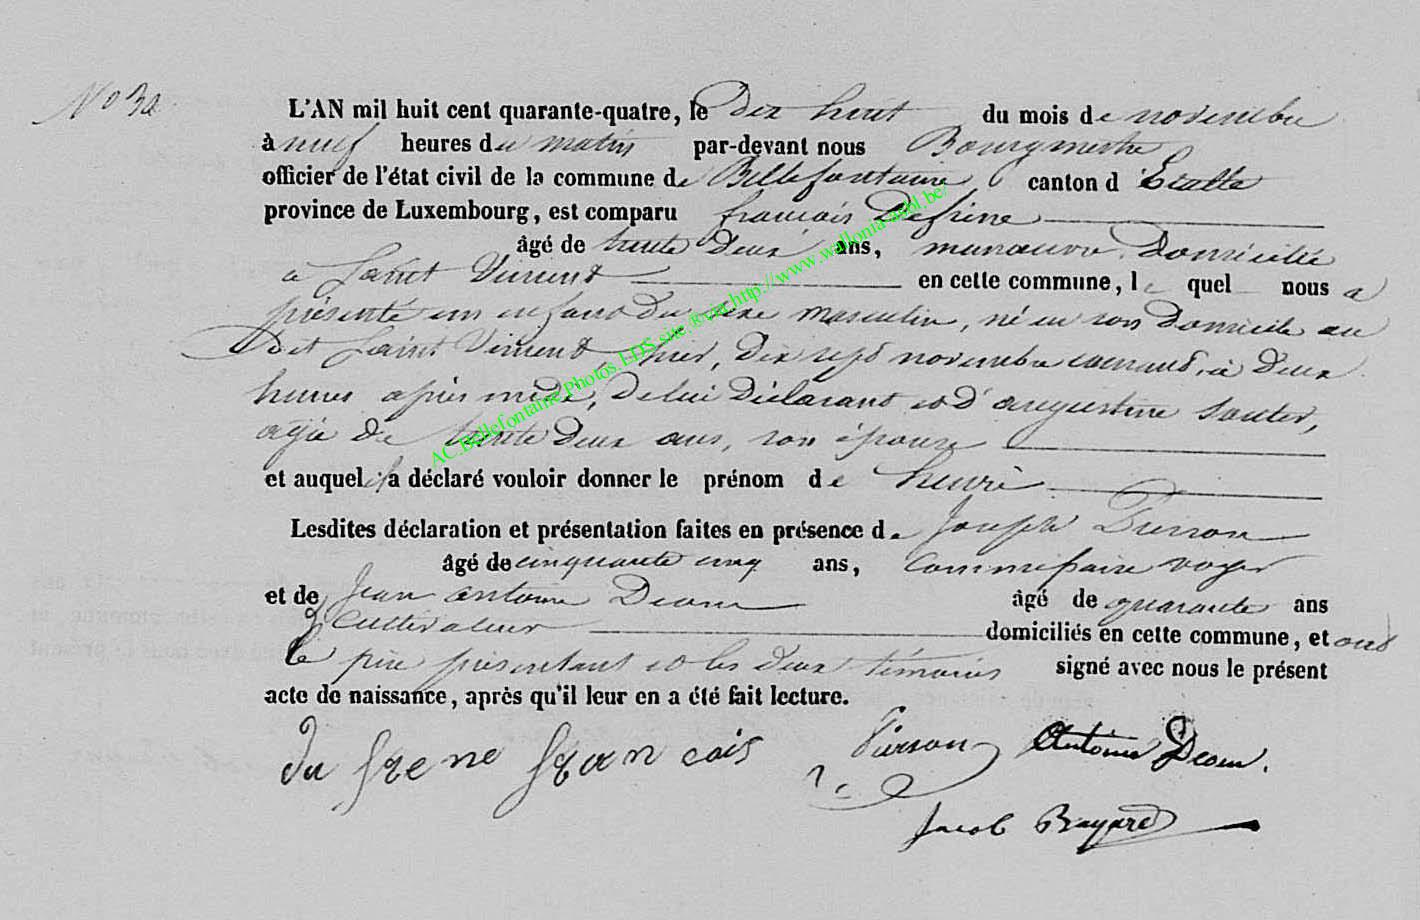 No 32
L'AN mil huit cent quarante-quatre, le Dix huit du mois de novembre
à neuf heures du matin par-devant nous Bourgmestre
officier de l'état civil de la commune de Bellefontaine canton d'Etalle
province de Luxembourg, est comparu francois Defrene
âgé de trente deux ans, manœuvre Domicilié
a Saint Vincent en cette commune, le quel nous a
présenté un enfant du sexe masculin, né en son Domicile au
Dit Saint Vincent, hier, Dix sept novembre courant, à Deux
heures après midi, De lui Déclarant et D'augustine Souter,
agée De trente Deux ans, son épouse
et auquel il a déclaré vouloir donner le prénom de henri
Lesdites déclaration et présentation faites en présence de Joseph Pierson
âgé de cinquante cinq ans, Commissaire voyer
et de Jean antoine Deom âgé de quarante ans
Cultivateur domiciliés en cette commune, et ont
le père présentant et les deux témoins signé avec nous le présent
acte de naissance, après qu'il leur en a été fait lecture.
du frene fran cois Pierson Antoine Deom.
Jacob Bayard
AC.Bellefontaine.Photos.LDS.site.®via.http://www.wallonia-asbl.be/